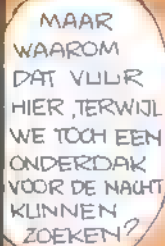 MAAR
WAAROM
DAT VUUR
HIER, TERWIJL
WE TOCH EEN
ONDERDAK
VOOR DE NACHT
KUNNEN
ZOEKEN?